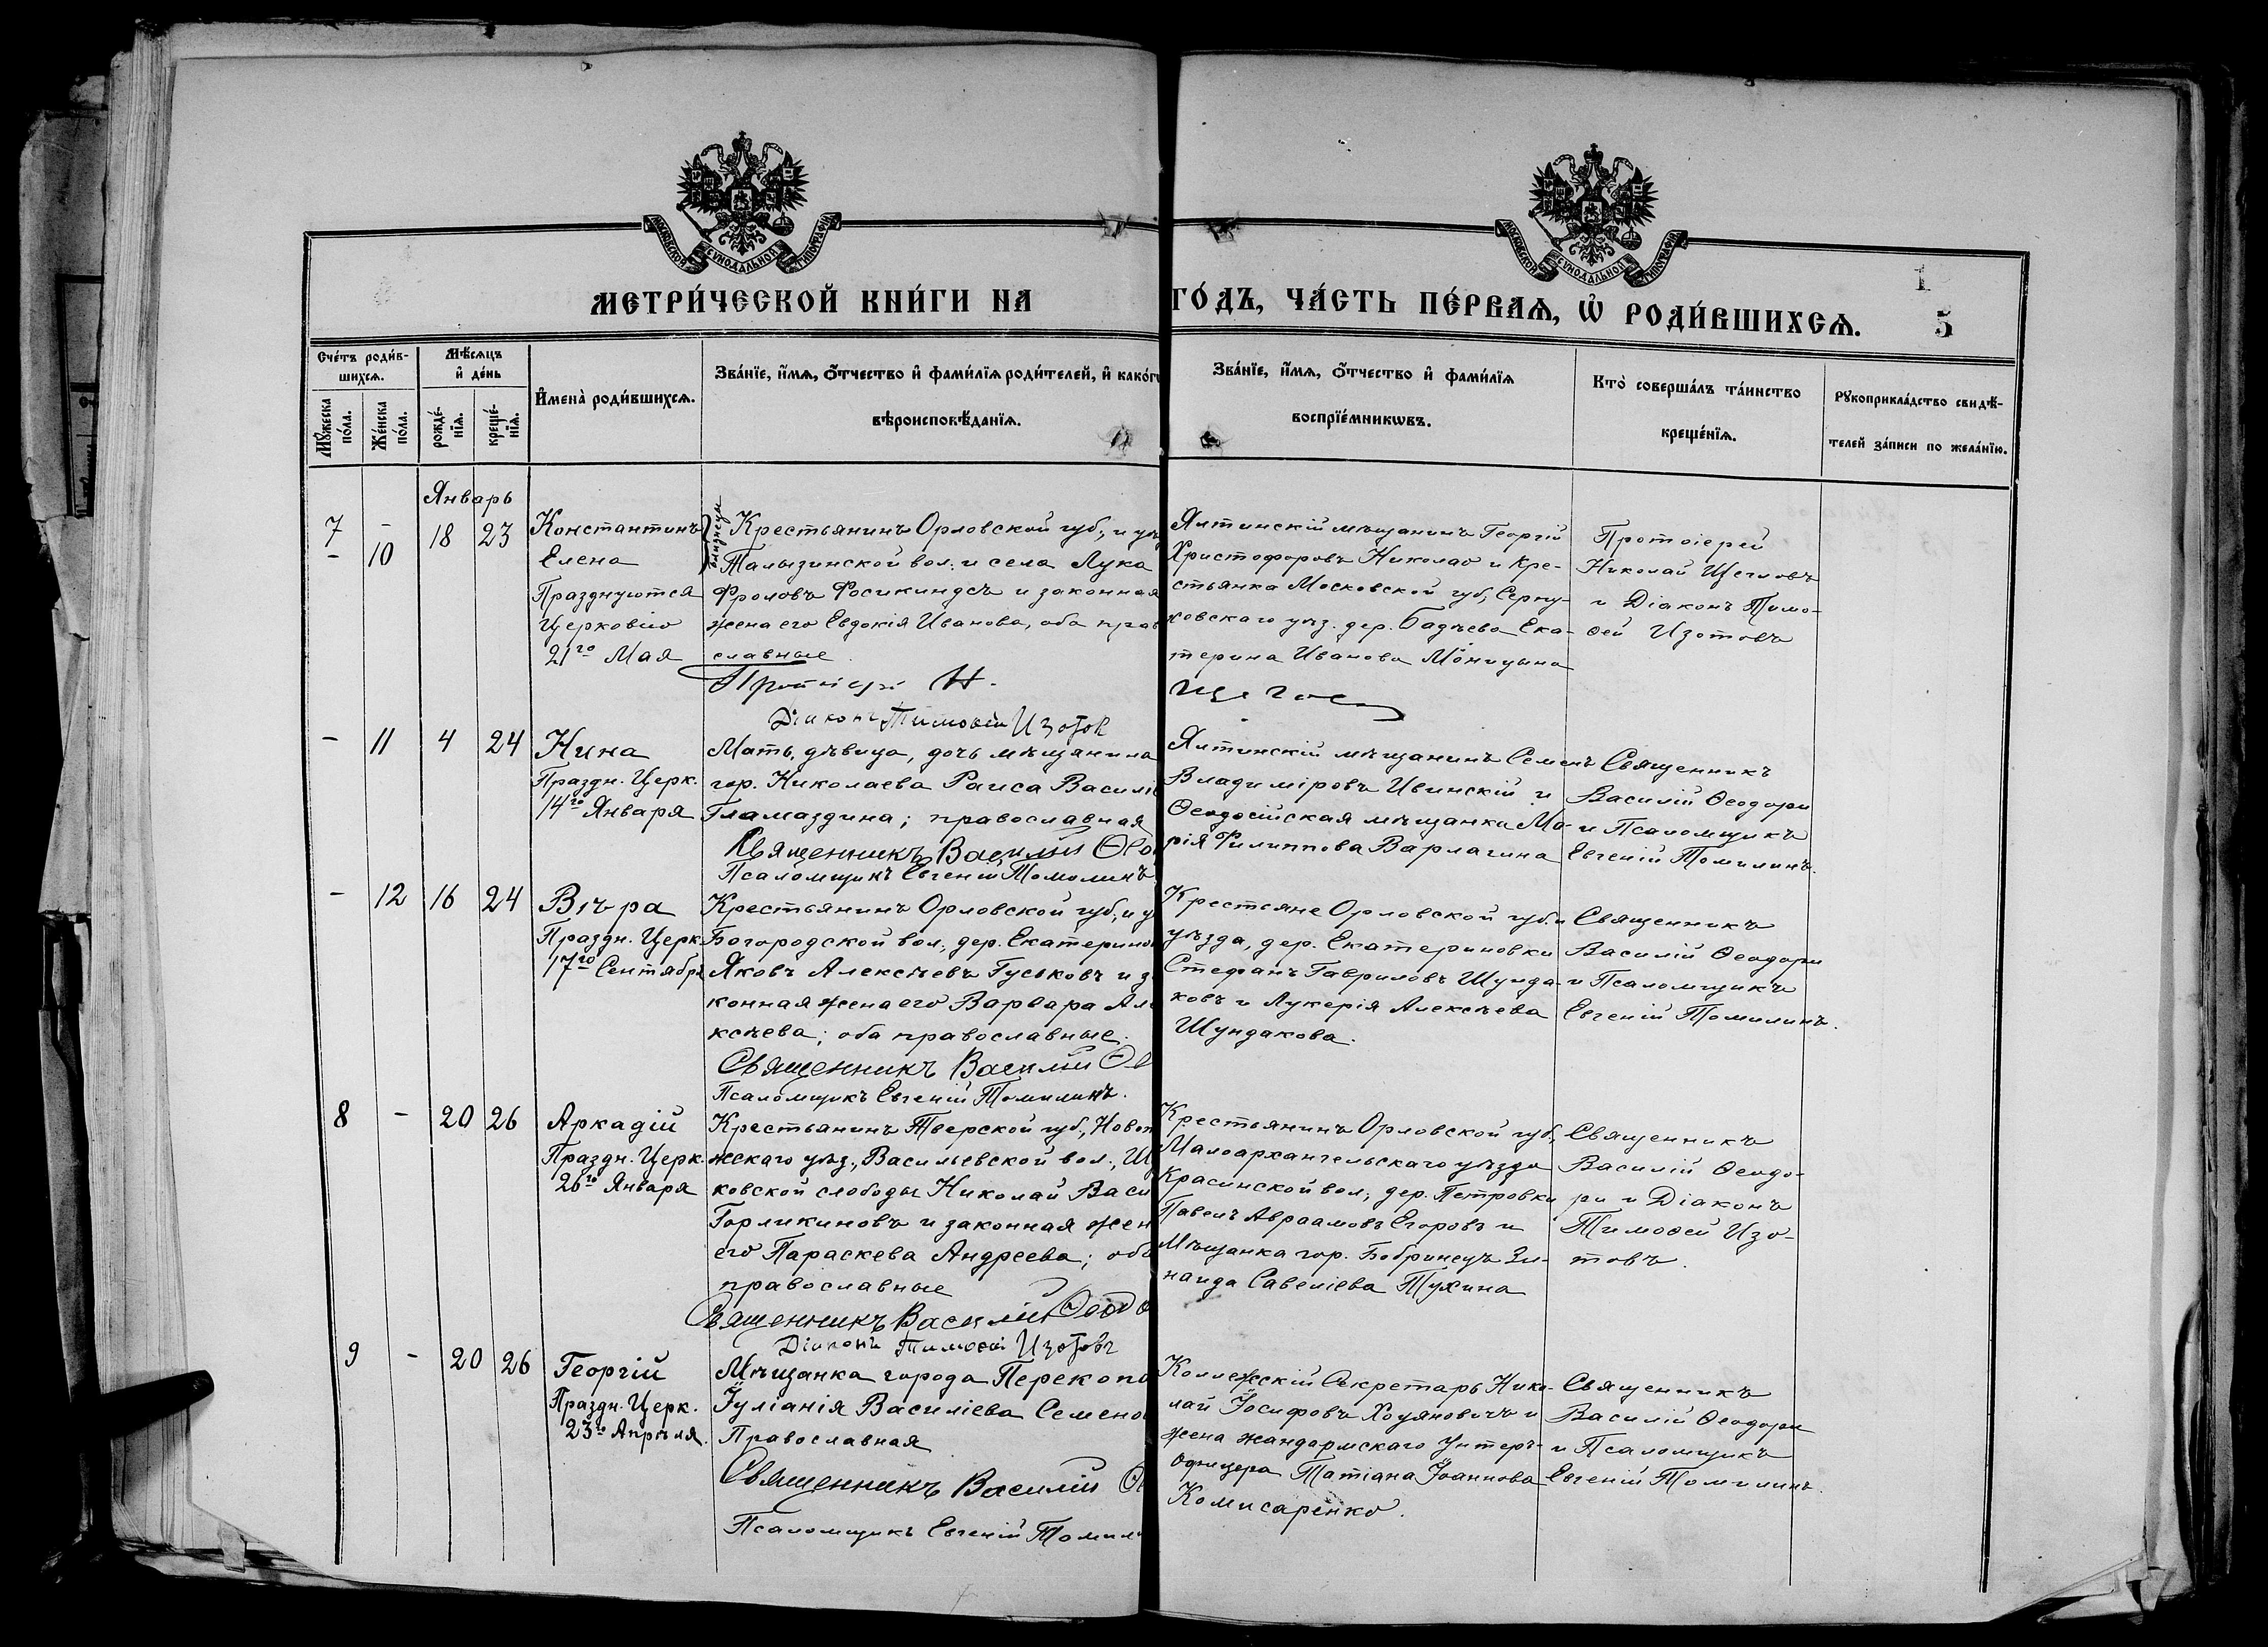 МОСКОВСКОЙ СѴНОДАЛЬНОЙ ТИПОГРАФІИ
МОСКОВСКОЙ СѴНОДАЛЬНОЙ ТИПОГРАФІИ
МЕТРИ́ЧЕСКОЙ КНИ́ГИ НА ГО́ДЪ, ЧА́СТЬ ПЕ́РВАѦ, Ѡ РОДИ́ВШИХСѦ.
1
5
Сче́тъ роди́в-
шихсѧ.
Мѣсѧцъ
и҆ де́нь
И҆мена̀ роди́вшихсѧ.
Зва́нїе, и҆́мѧ, ѻ҆́тчество и҆ фами́лїѧ роди́телей, и҆ како́гѡ
вѣроисповѣ́данїѧ.
Зва́нїе, и҆́мѧ, ѻ҆́тчество и҆ фами́лїѧ
воспрїе́мникѡвъ.
Кто̀ соверша́лъ та́инство
креще́нїѧ.
Рꙋкоприкла́дство свидѣ́-
телей за́писи по жела́нїю.
Мꙋ́жеска
по́ла.
Же́нска
по́ла.
рожде́-
нїѧ.
креще́-
нїѧ.
Январь
7 - 18 23
- 10
Константинъ
Елена
Празднуются
Церковію
21го Мая
близнецы
Крестьянинъ Орловской губ., и уѣз
Талызинской вол. и села Лука
Фроловъ Фосикиндсъ и законная
жена его Евдокія Иванова, оба прав
славные
Протоіерей Н.
Діаконъ Тимоѳей Изотов
Ялтинскій мѣщанинъ Георгій
Христофоровъ Николао и Кре-
стьянка Московской губ., Серпу-
ховскаго уѣз. дер. Бадѣево Ека-
терина Иванова Моницына
Щегло
Протоіерей
Николай Щегловъ
и Діаконъ Тимо-
ѳей Изотовъ
- 11 4 24
Нина
Праздн. Церк.
14го Января
Мать, дѣвица, дочь мѣщанина
гор. Николаева Раиса Василі
Гламаздина; православная
Священникъ Василій Ѳео
Псаломщикъ Евгеній Томилинъ
Ялтинскій мѣщанинъ Семенъ
Владиміровъ Ивинскій и
Ѳеодосійская мѣщанка Ма-
рія Филиппова Варлагина
Священникъ
Василій Ѳеодори
и Псаломщикъ
Евгеній Томилинъ.
- 12 16 24
Вѣра
Праздн. Церк.
17го Сентября
Крестьянинъ Орловской губ., и у
Богородской вол., дер. Екатерино
Яковъ Алексѣевъ Гуськовъ и за
конная жена его Варвара Але
ксѣева; оба православные.
Священникъ Василій Ѳе
Псаломщикъ Евгеній Томилинъ.
Крестьяне Орловской губ. и
уѣзда, дер. Екатериновки
Стефанъ Гавриловъ Шунда-
ковъ и Лукерія Алексѣева
Шундакова.
Священникъ
Василій Ѳеодори
и Псаломщикъ
Евгеній Томилинъ.
8 - 20 26
Аркадій
Праздн. Церк.
26го Января
Крестьянинъ Тверской губ., Новот
жскаго уѣз., Васильевской вол., Щ
ковской слободы Николай Васи
Горликиновъ и законная жен
его Параскева Андреева; оба
православные
Священникъ Василій Ѳеодо
Діаконъ Тимоѳей Изотовъ
Крестьянинъ Орловской губ.,
Малоархангельскаго уѣзда
Красинской вол., дер. Петровки
Павелъ Авраамовъ Егоровъ и
Мѣщанка гор. Бобринецъ Зи-
наида Савеліева Тухина
Священникъ
Василій Ѳеодо-
ри и Діаконъ
Тимоѳей Изо-
товъ.
9 - 20 26
Георгій
Праздн. Церк.
23го Апрѣля.
Мѣщанка города Перекопа
Іуліанія Василіева Семено
Православная
Священникъ Василій Ѳе
Псаломщикъ Евгеній Томили
Коллежскій Секретарь Нико-
лай Іосифовъ Хоцяновичъ и
жена жандармскаго Унтеръ-
офицера Татіана Іоаннова
Комисаренко.
Священникъ
Василій Ѳеодори
и Псаломщикъ
Евгеній Томилинъ.